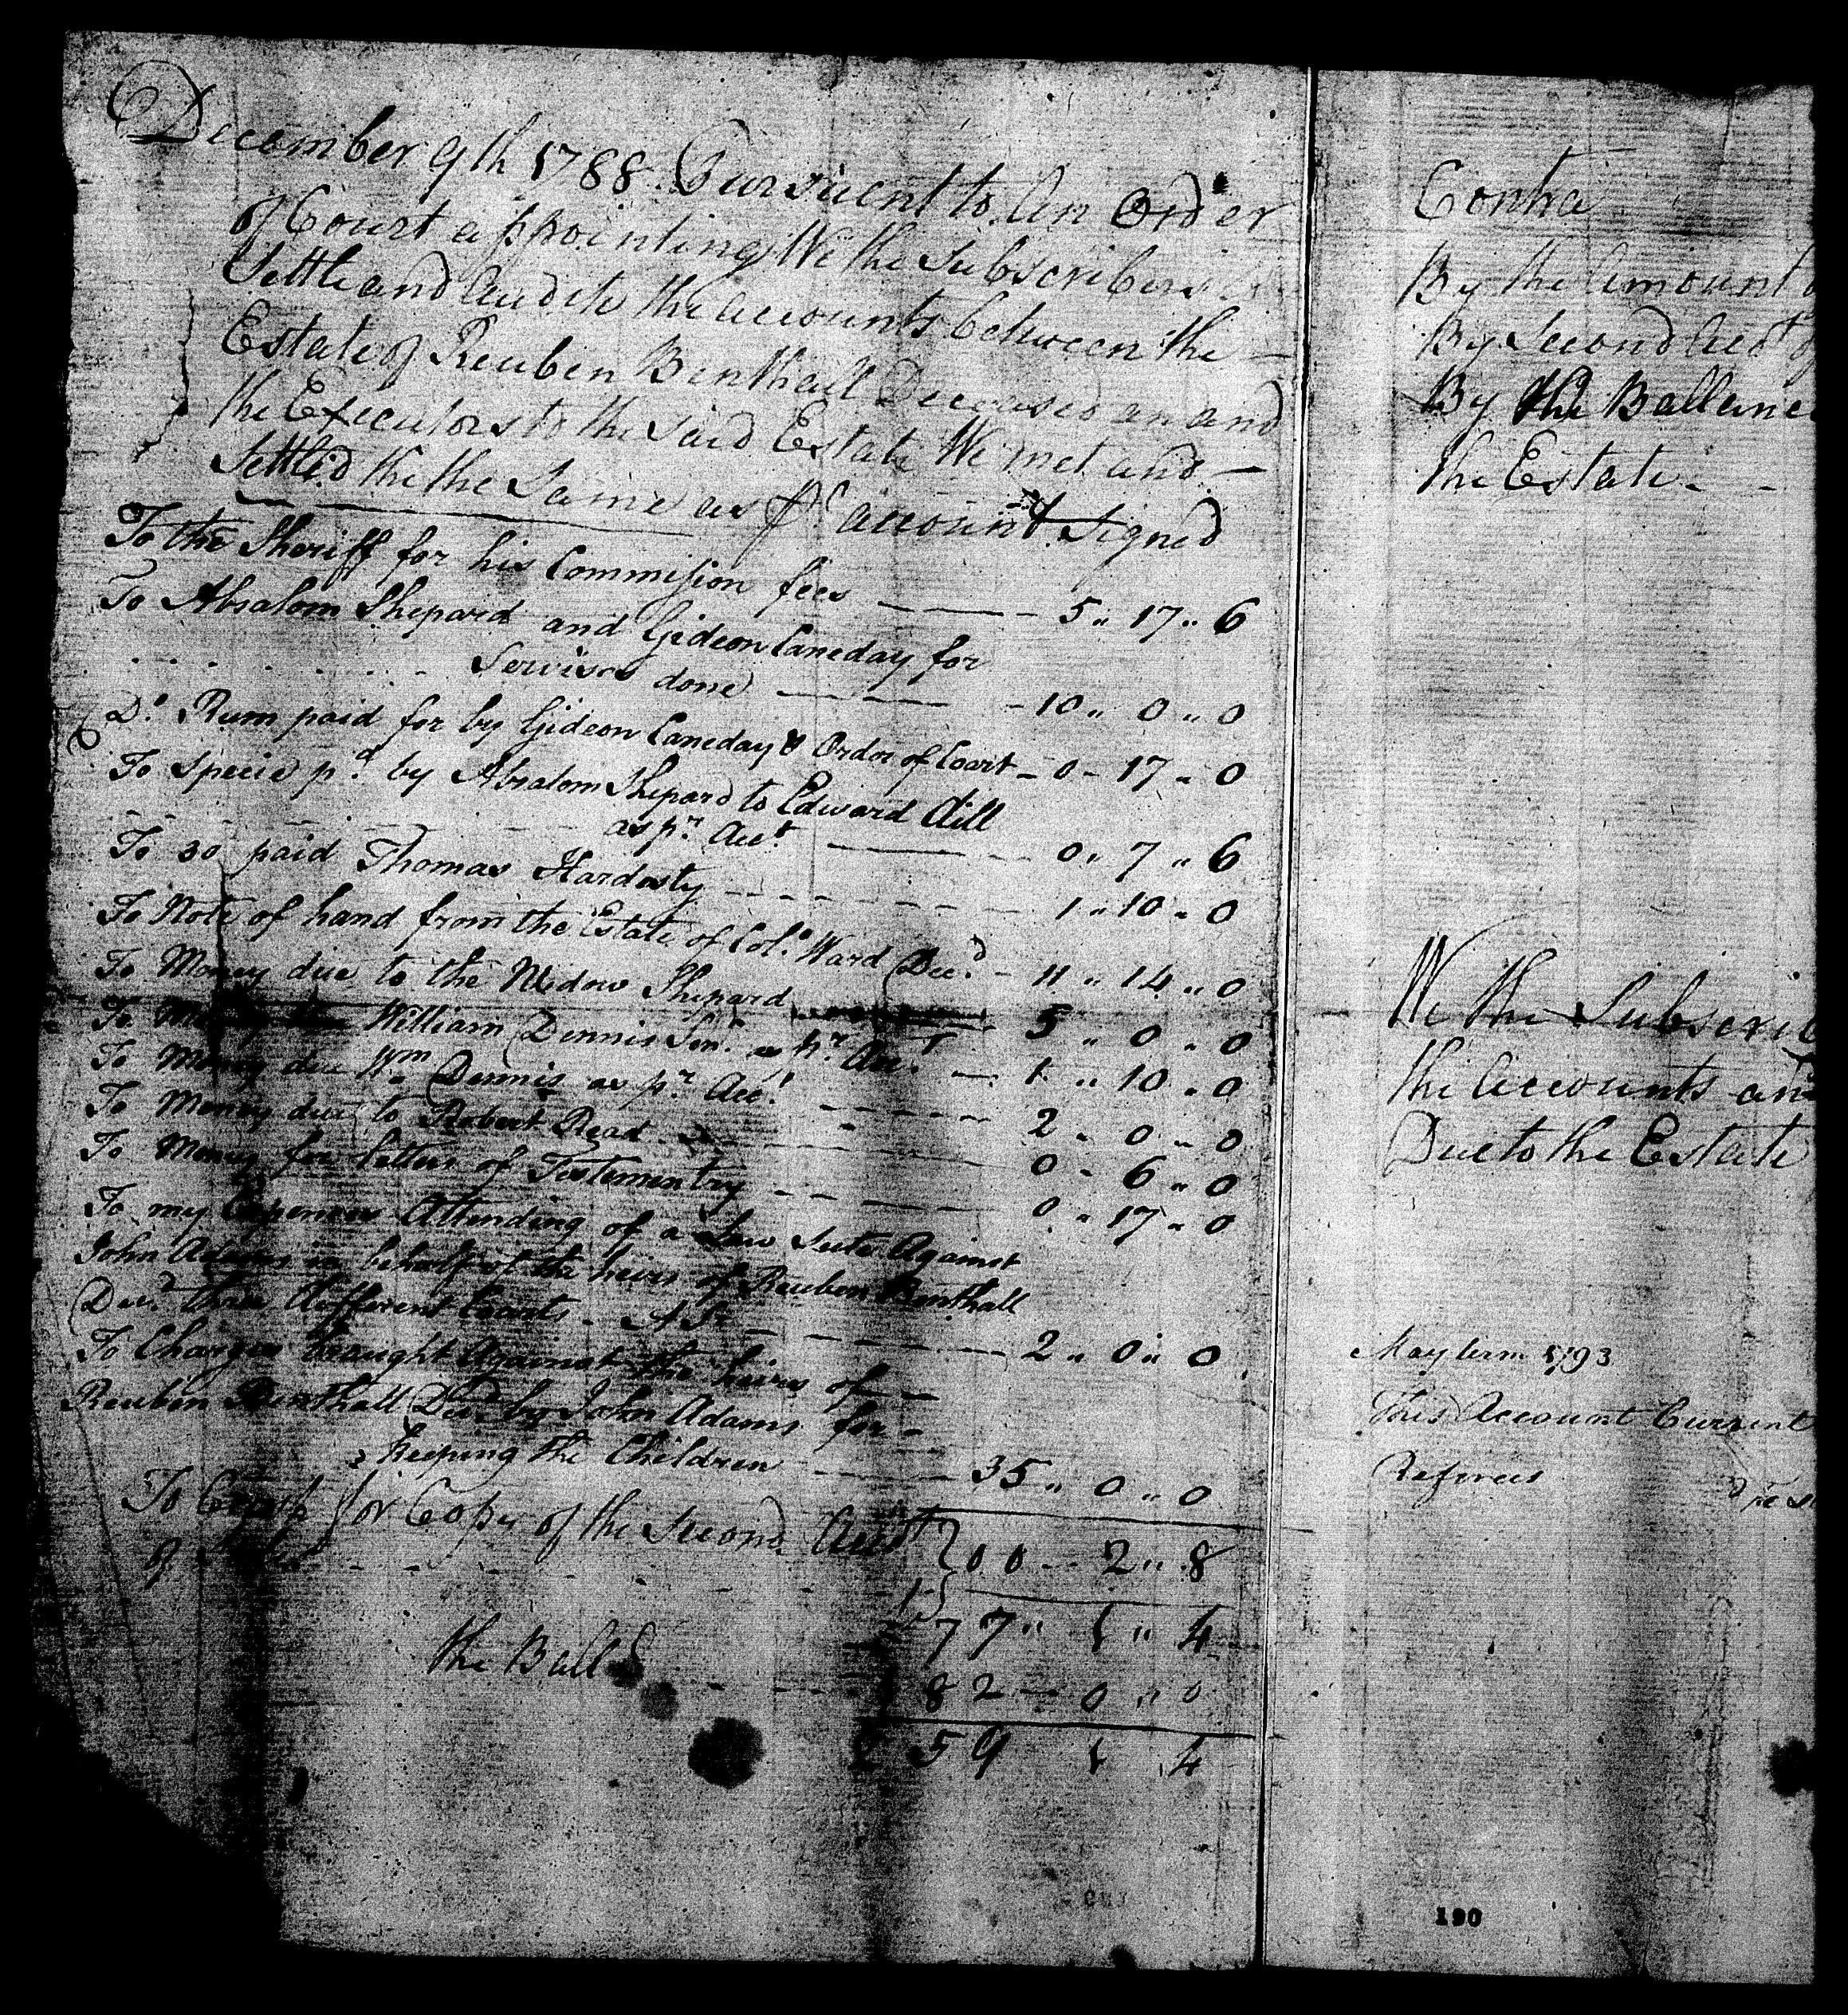 December 9th 1788. Pursuent to An Order
of Court appointing We the Subscribers
Settle and Audite the accounts between the —
Estate of Reuben Benthall Deceased an and
the Executors to the said Estate We met and —
Settled the the Same as pr account Signed
To the Sheriff for his Commission fees — 5 " 17 " 6
To Absalom Shepard and Gideon Caneday for
Servises done — 10 " 0 " 0
Do. Rum paid for by Gideon Caneday & Order of Court — 0 - 17 " 0
To Specie pd. by Absalom Shepard to Edward Aill
as pr. Acct. — 0 " 7 " 6
To Do paid Thomas Hardesty — 1 " 10 " 0
To Note of hand from the Estate of Col.o Ward Decd. — 11 " 14 " 0
To Money due to the Widow Shepard 5 " 0 " 0
To Money due William Dennis Senr. as pr. Acct. — 1 " 10 " 0
To Money due Wm. Dennis as pr. Acct. — 2 " 0 " 0
To Money due to Robert Read — 0 - 6 " 0
To Money for Letters of Testementry — 0 " 17 " 0
To my Expences Attending of a Law Sute Against
John Adams in behalf of the heirs of Reuben Benthall
Decd. three different Courts — 2 " 0 " 0
To Charges brought Against the heirs of —
Reuben Benthall Decd. by John Adams for —
keeping the Children — 35 " 0 " 0
To for Copy of the Second Acct } 00 — 2 " 8
of
77 " 1 " 4
the Ball 82 — 0 " 0
59 1 4
Contra
By the Amount
By Second Acct of
By the Ballance
the Estate -
We the Subscrib
the Accounts an
Due to the Estate
May term 1793
This Account Current
Referees
190